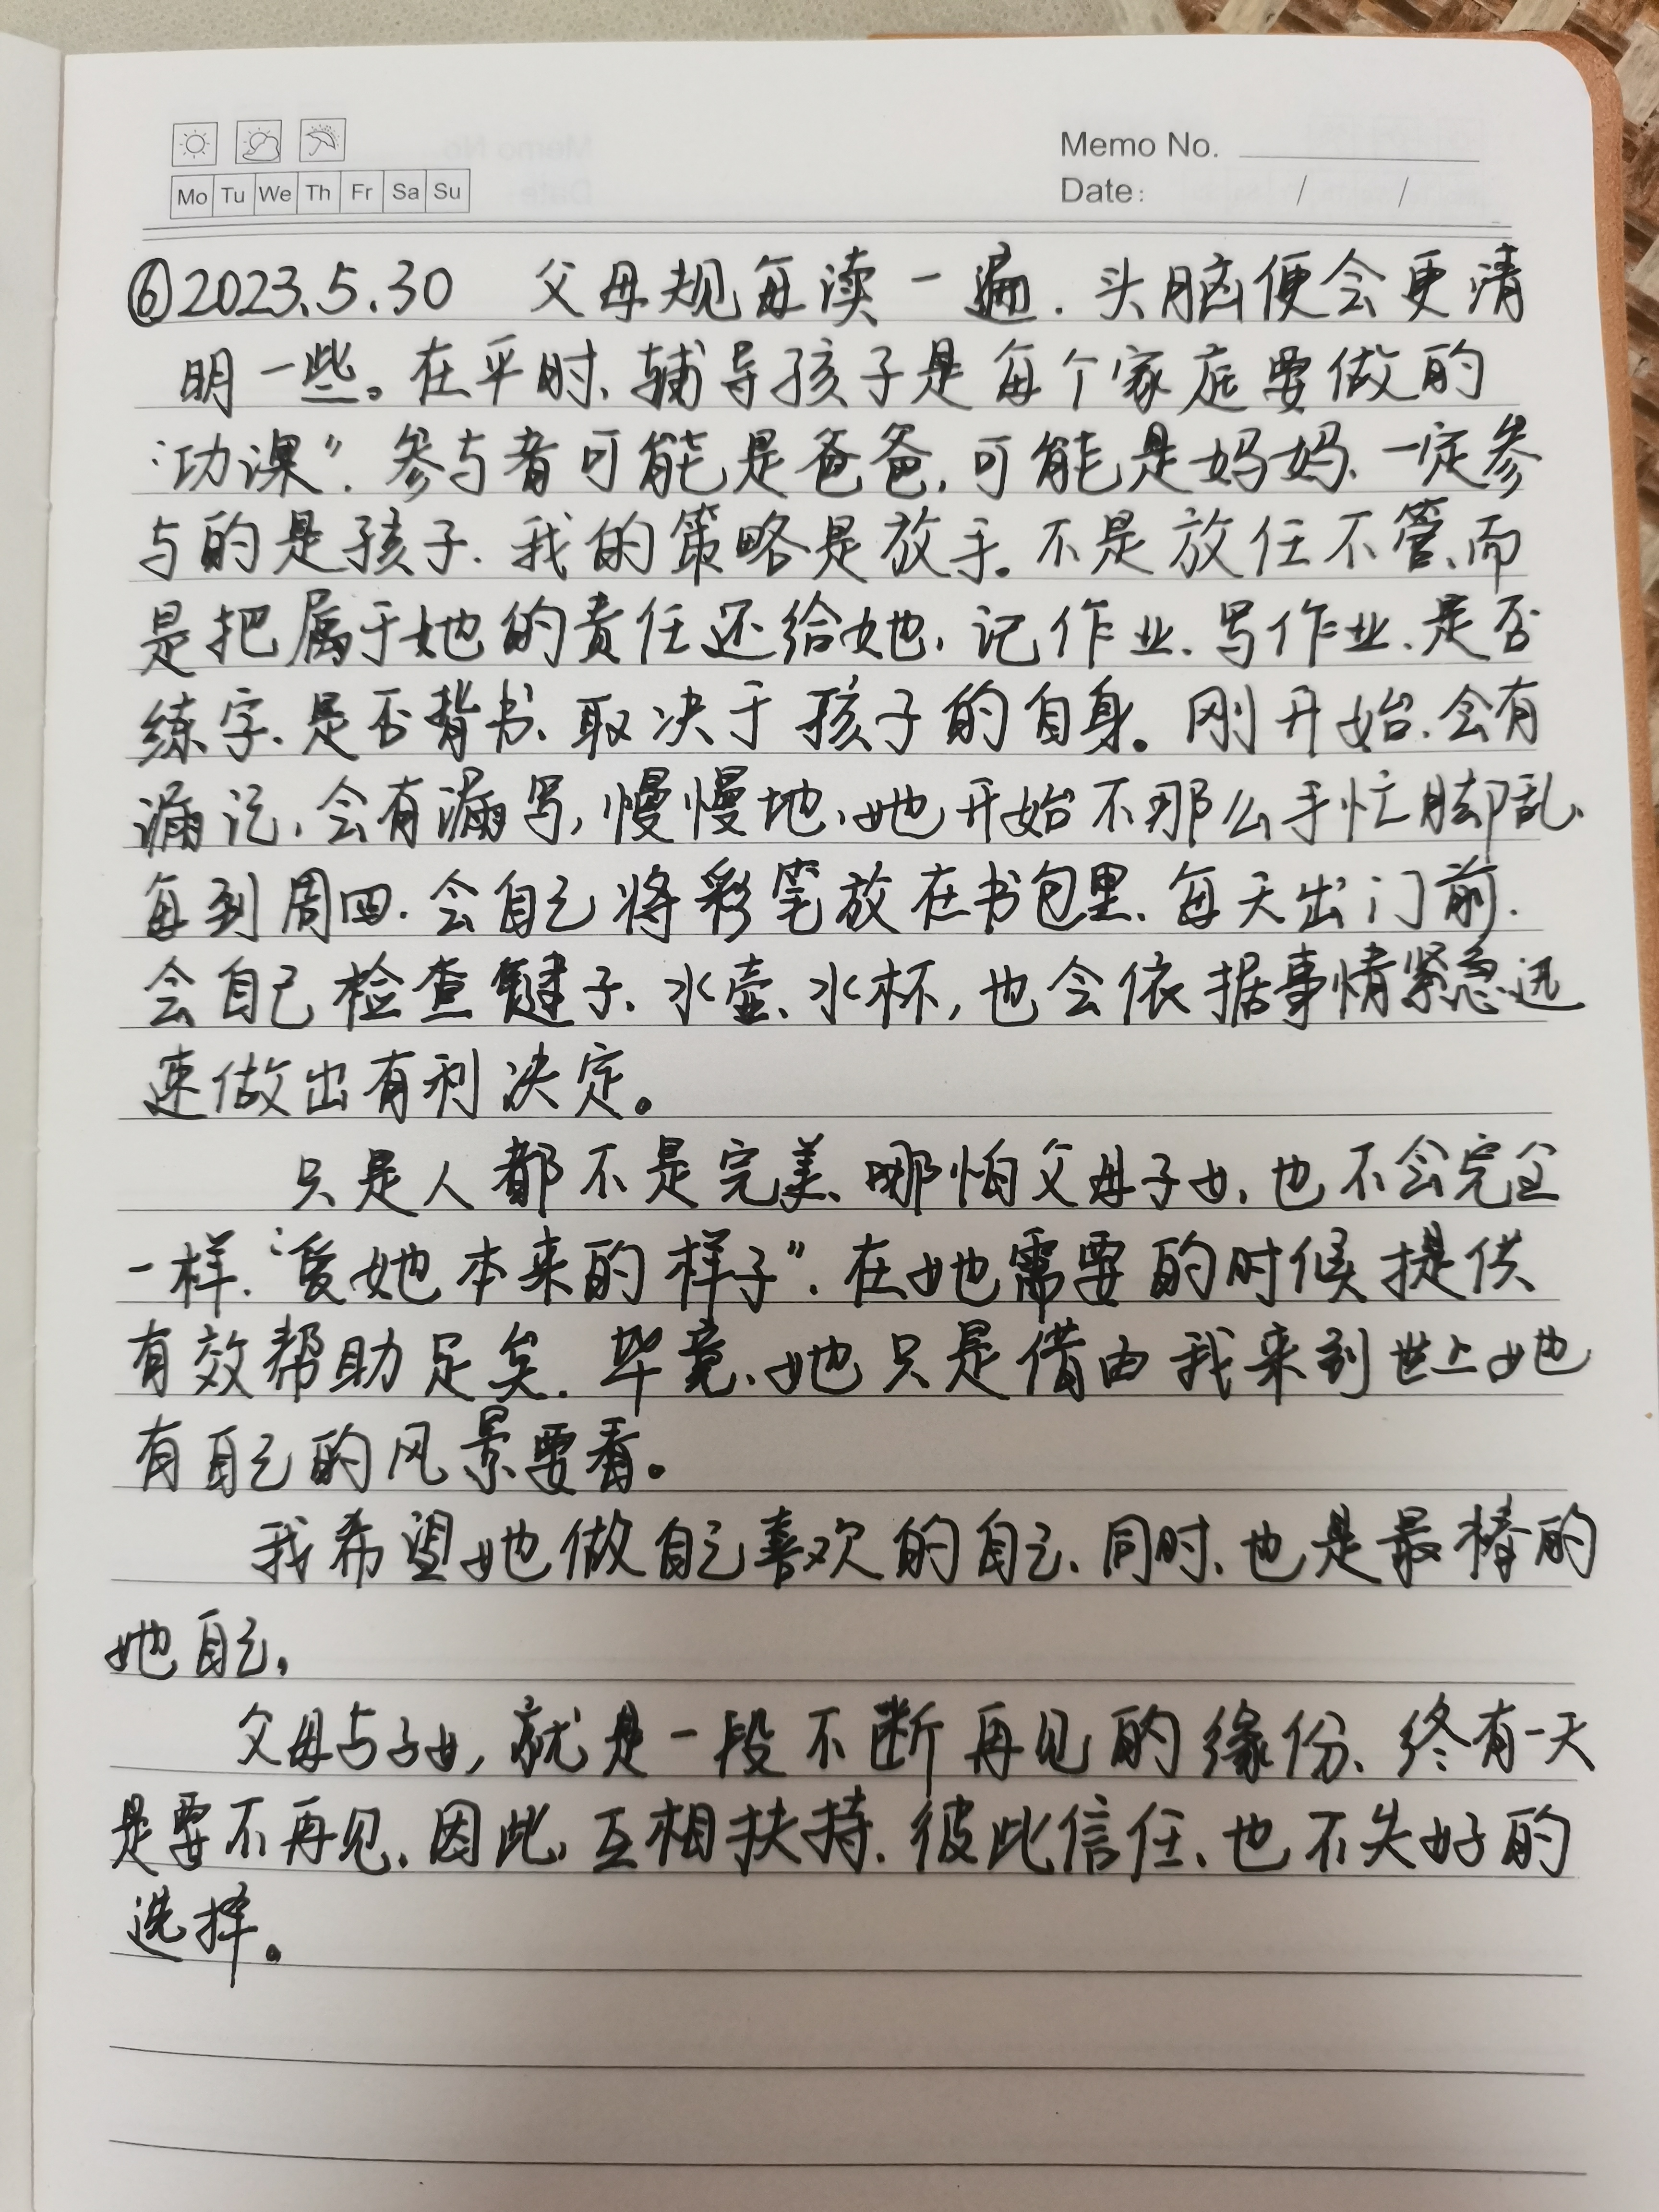 Memo No.
Mo Tu We Th Fr Sa Su
Date: / /
⑥2023.5.30 父母规每读一遍.头脑便会更清
明一些。在平时、辅导孩子是每个家庭要做的
“功课”.参与者可能是爸爸,可能是妈妈、一定参
与的是孩子.我的策略是放手。不是放任不管、而
是把属于她的责任还给她,记作业.写作业.是否
练字.是否背书、取决于孩子的自身。刚开始.会有
漏记,会有漏写,慢慢地、她开始不那么手忙脚乱、
每到周四.会自己将彩笔放在书包里、每天出门前.
会自己检查毽子、水壶、水杯,也会依据事情紧急迅
速做出有利决定。
只是人都不是完美、哪怕父母子女,也不会完全
一样.“爱她本来的样子”.在她需要的时候提供
有效帮助足矣.毕竟、她只是借由我来到世上她
有自己的风景要看。
我希望她做自己喜欢的自己、同时、也是最棒的
她自己,
父母与子女,就是一段不断再见的缘份、终有一天
是要不再见、因此、互相扶持.彼此信任、也不失好的
选择。